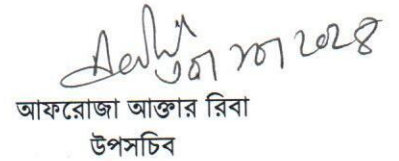 আফরোজা আক্তার রিবা
উপসচিব